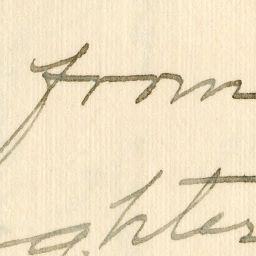 from
ghter